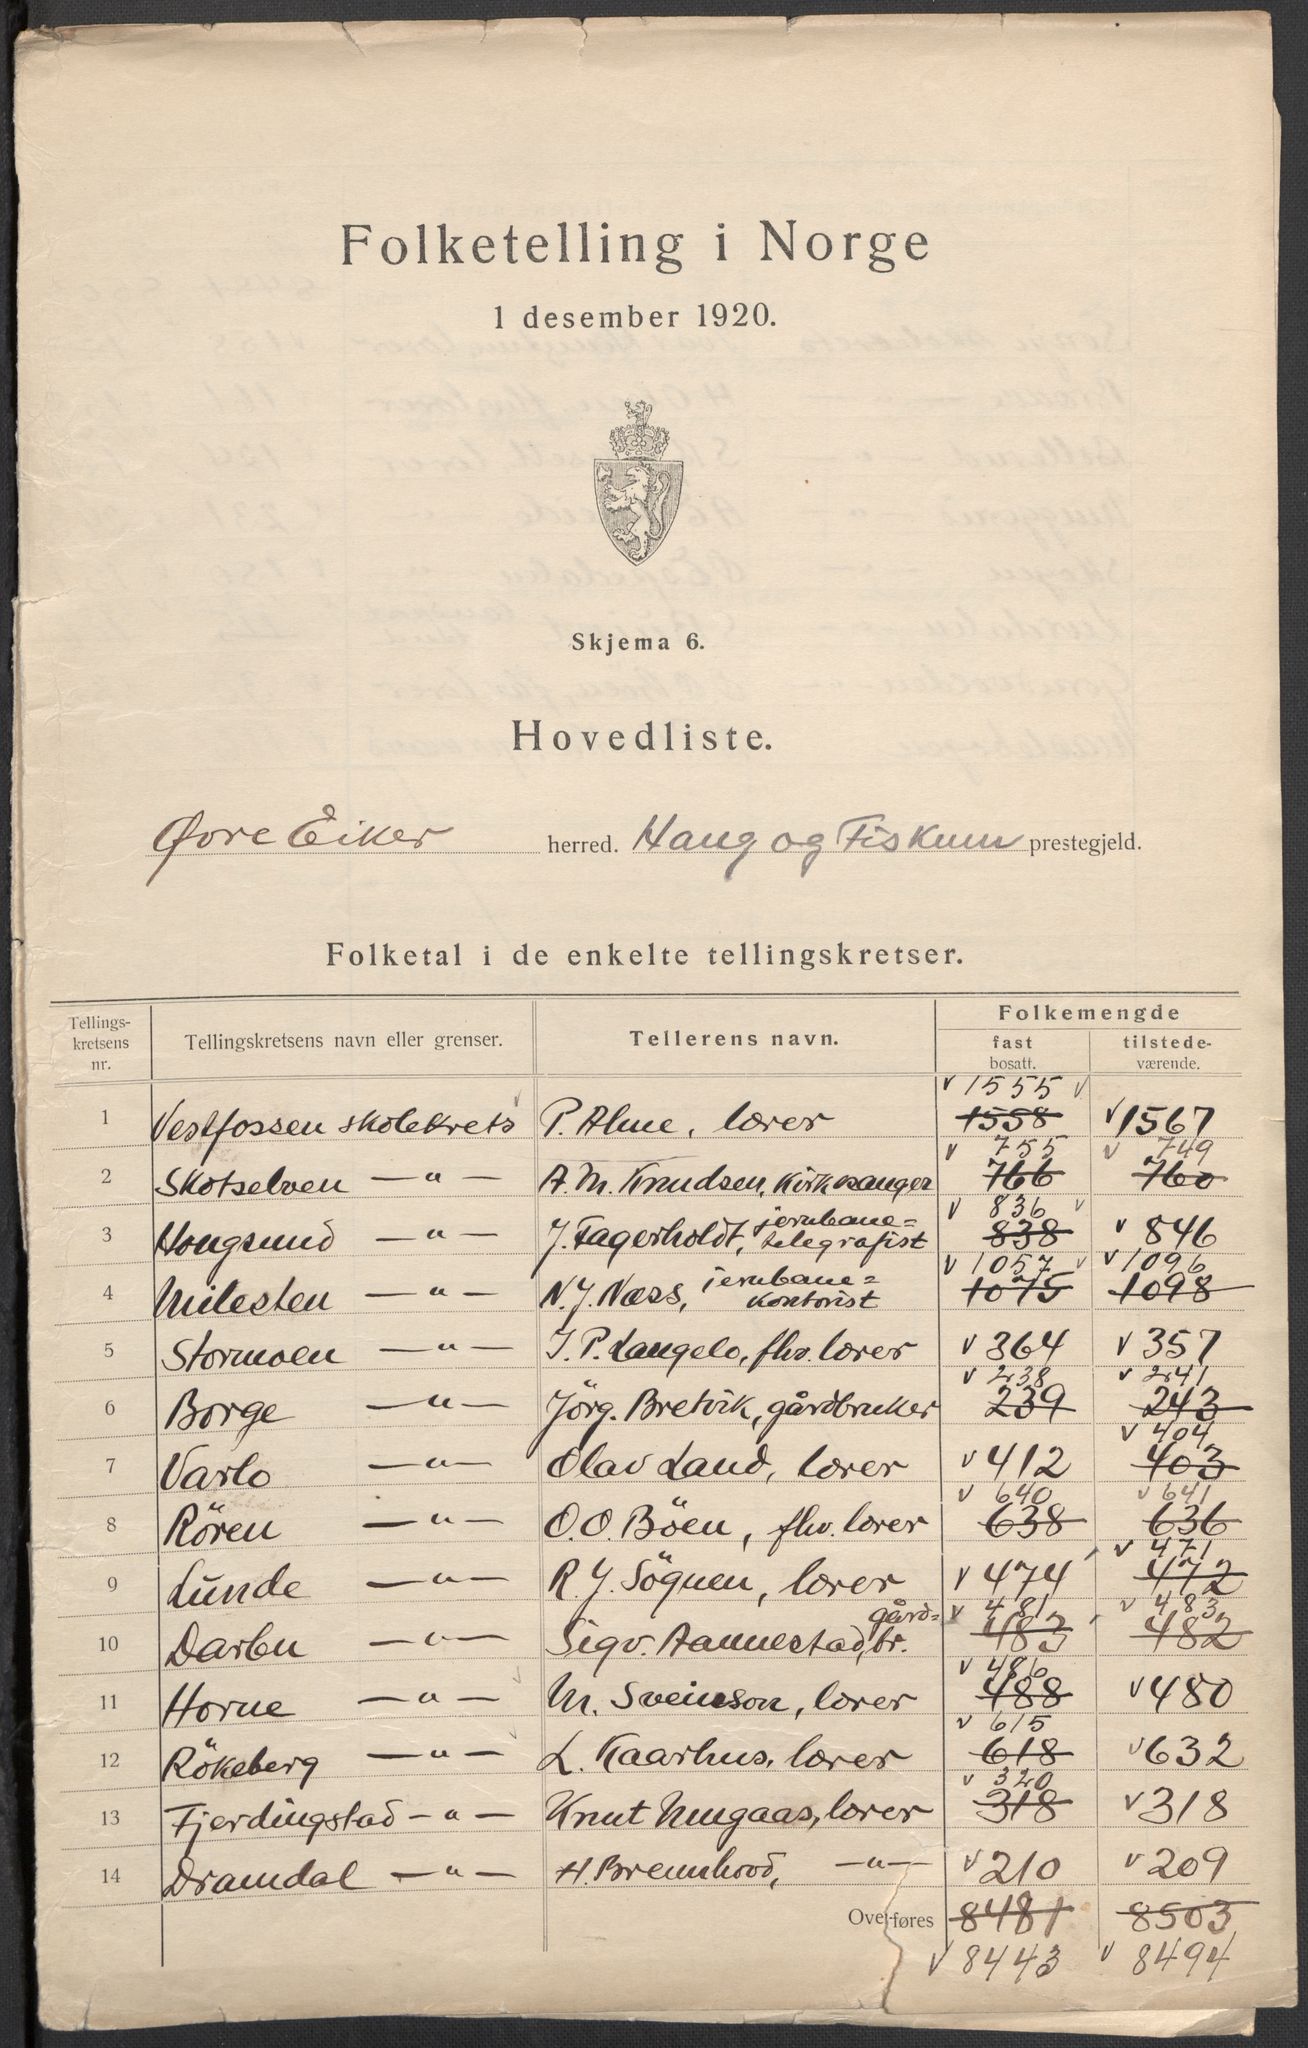 Folketelling i Norge
1 desember 1920.
Skjema 6.
Hovedliste.
Øvre Eiker herred. Haug og Fiskum prestegjeld.
Folketal i de enkelte tellingskretser.
Tellings-kretsens nr. Tellingskretsens navn eller grenser. Tellerens navn. Folkemengde
fast bosatt. tilstede-værende.
v 1555 v
1 Vestfossen skolekrets P. Alme, lærer 1558 v 1567
v 755 v 749
2 Skotselven —„— A. M. Knudsen, kirkesanger 766 760
v 836 v
3 Hougsund —„— J. Fagerholdt, jernbane=telegrafist 838 v 846
v 1057 v v 1096
4 Milesten —„— N. J. Næss, jernbane=kontorist 1075 1098
5 Stormoen —„— J. P. Langelo, fhv. lærer v 364 v 357
v 238 v 241
6 Borge —„— Jörg. Bretvik, gårdbruker 239 243
v 404
7 Varlo —„— Olav Land, lærer v 412 403
v 640 v 641
8 Rören —„— O. O. Böen, fhv. lærer 638 636
v 471
9 Lunde —„— R. J. Sögnen, lærer v 474 472
v 481 v 483
10 Darbu —„— Sigv. Aannestad, gård=br. 483 482
v 486
11 Horne —„— M. Sveinson, lærer 488 v 480
v 615
12 Rökeberg —„— L. Kaarhus, lærer 618 v 632
v 320
13 Fjerdingstad —„— Knut Mugaas, lærer 318 v 318
14 Dramdal —„— H. Bremhovd, —„— v 210 v 209
Overføres 8481 8503
v 8443 v 8494